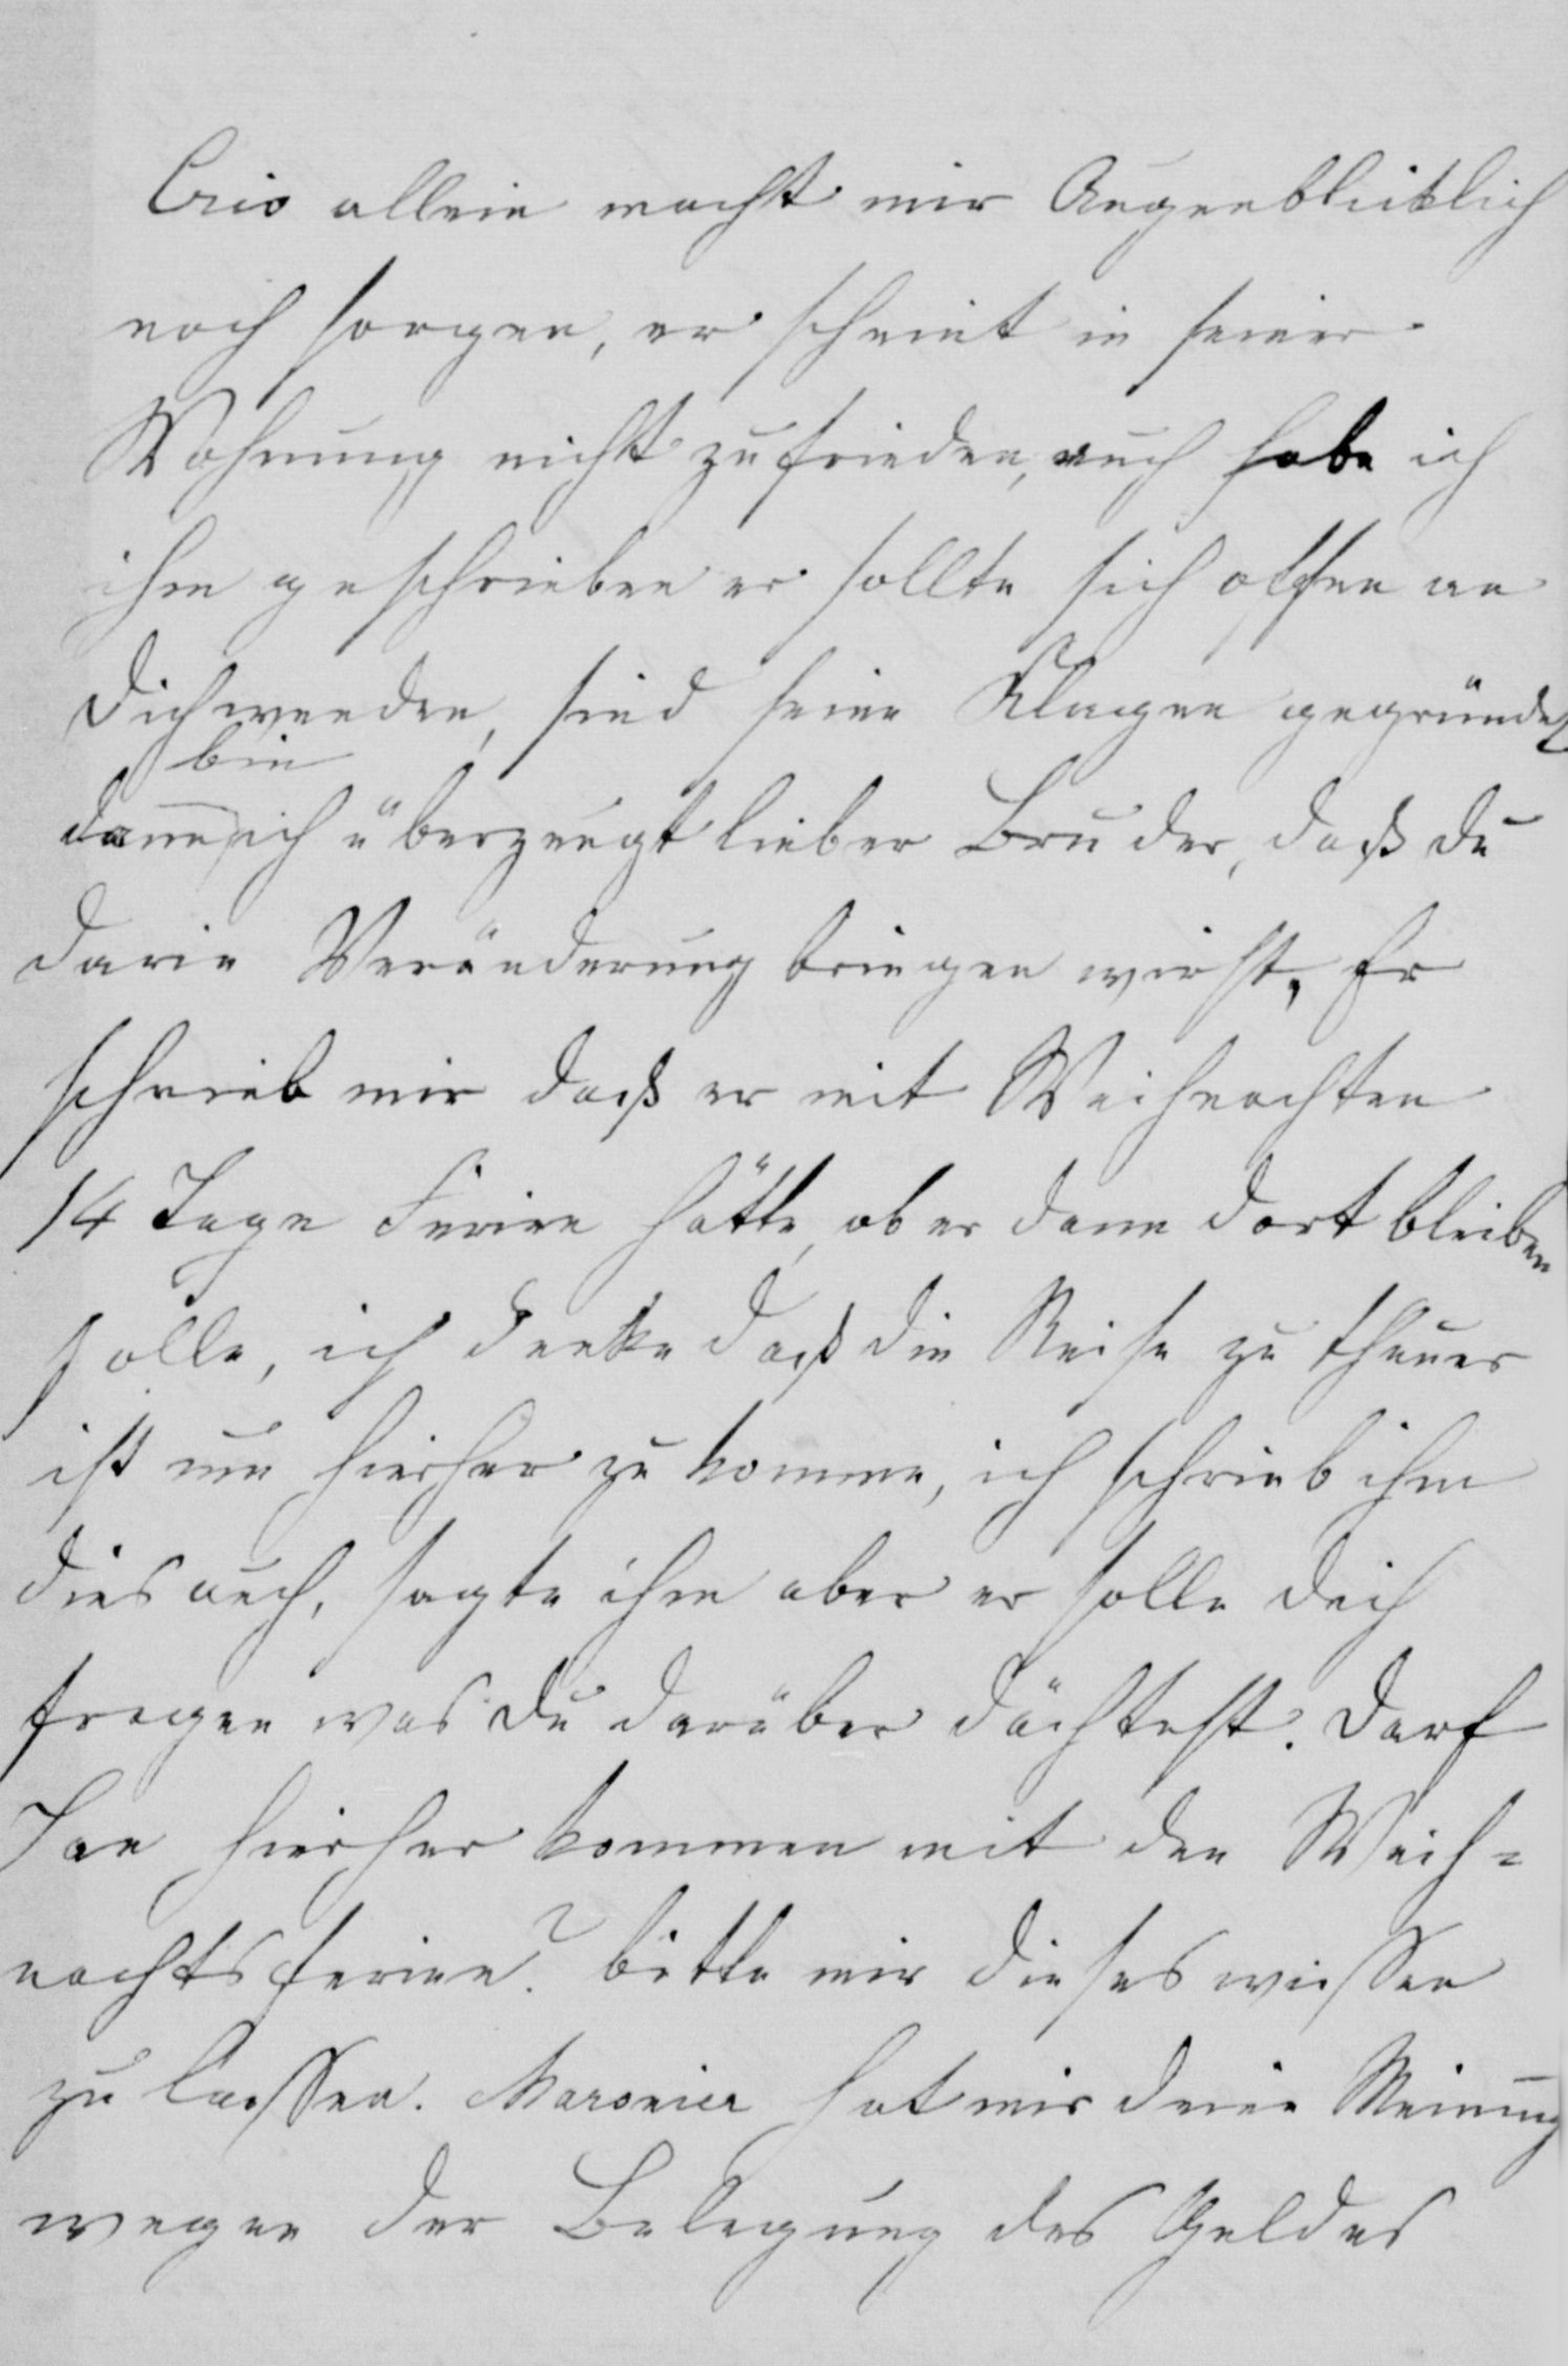 Cris allein macht mir Augenblicklich
noch sorgen, er scheint in seiner
Wohnung nicht zufrieden, auch habe ich
ihm geschrieben er sollte sich offen an
Dich wenden, sind seine Klagen gegründet
bin
dann ich überzeugt lieber Bruder, daß du
darin Veränderung bringen wirst, Er
schrieb mir daß er mit Weihnachten
14 Tage Ferien hätte, ob er dann dort bleiben
solle, ich denke daß die Reise zu theuer
ist um hierher zu komme, ich schrieb ihm
dies auch, sagte ihm aber er solle dich
fragen was du darüber dächtest. Darf
Jan hierher kommen mit den Weih=
nachtsferien? bitte mir dieses wissen
zu lassen. Maronier hat mir deine Meinung
wegen der Belegung des Geldes